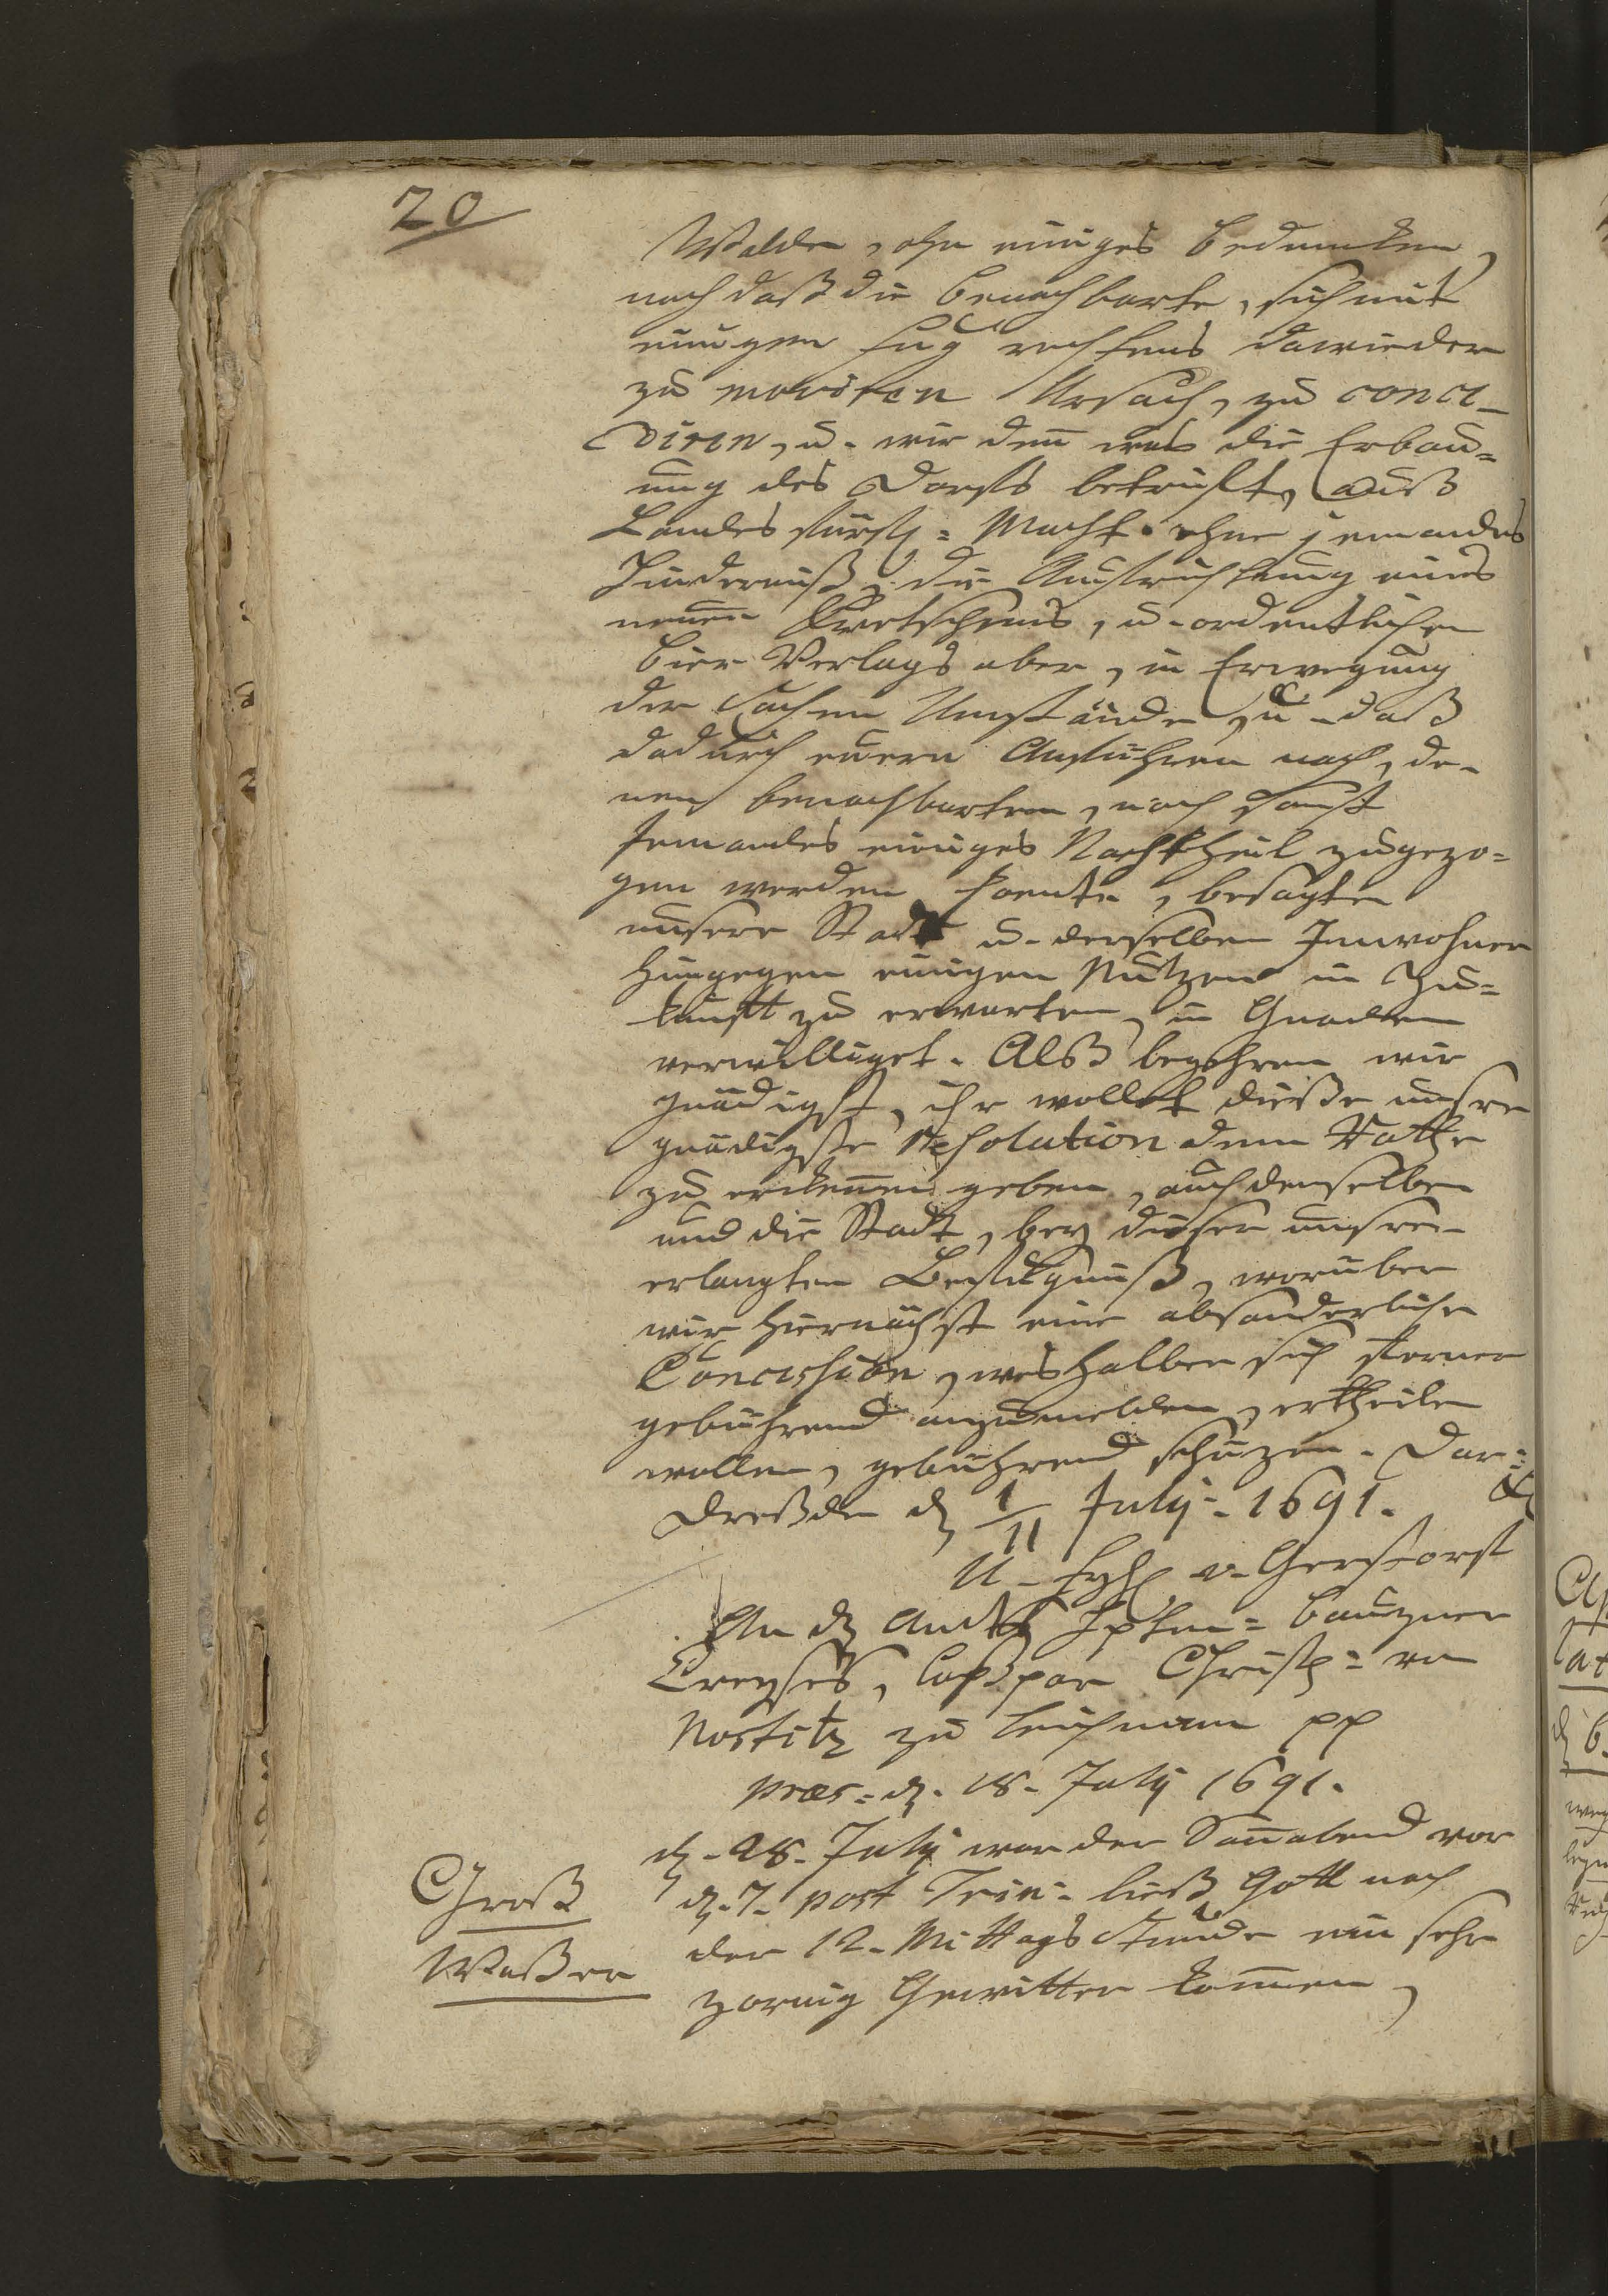 20
Walden, ohn einiges bedencken,
noch daß die benachbarte, sich mit
einigen fug rechtens dawieder
zu moviren Ursach, zu conce-
diren, u. wir denn was die Erbau-
ung des Dorffs betrifft, auß
Landesfürstl: Macht ohne jemandes
Hinderniß, die Auffrichtung eines
neuen Kretschems, u. ordentlichen
bier Verlags aber, in Erwegung
der Sachen Umstände, u. daß
dadurch euern Anführen nach, de-
nen benachbarten, noch sonst
Jemandes einiges Nachtheil zugezo-
gen werden koente, besagter
unserer Stadt u. derselben Innwohner
hingegen einigen Nutzen in Zu-
kunfft zu erwarten, in Gnaden
verwilliget. Alß begehren wir
gnädigst, ihr wollet dieße unsere
gnädigste Resolution dem Rathe
zu erkennen geben, auch denselben
und die Stadt, bey dieser unserer
erlangten Befugnuß, worüber
wir hiernächst eine absonderliche
Concession, weshalben sich ferner
gebührend anzumelden, ertheilen
wollen, gebührend schüzen. Dat:
Dreßden d. 1/11 July. 1691.
N. v. Gersdorff
An d. Ambts Hptm: bauzner
Creyses, Caßpar Christ: von
Nostitz zu pp
præs: d. 18. July 1691.
d. 28. July war der Sonnabend vor
d. 7. post Trin: ließ Gott nach
der 12. Mittags Stunde ein sehr
zornig Gewitter kommen,
Groß
Waßer